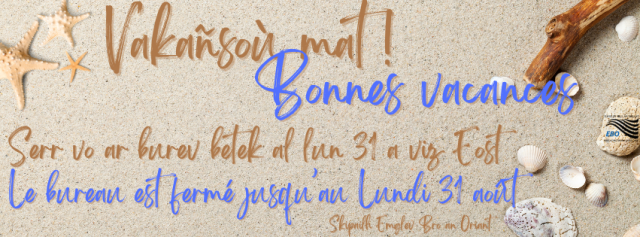 Vakañsoù mat !
Bonnes vacances
Serr vo ar burev betek al lun 31 a viz Eost
Le bureau est fermé jusqu'au Lundi 31 août
Skipailh Emglev Bro an Oriant
EBO